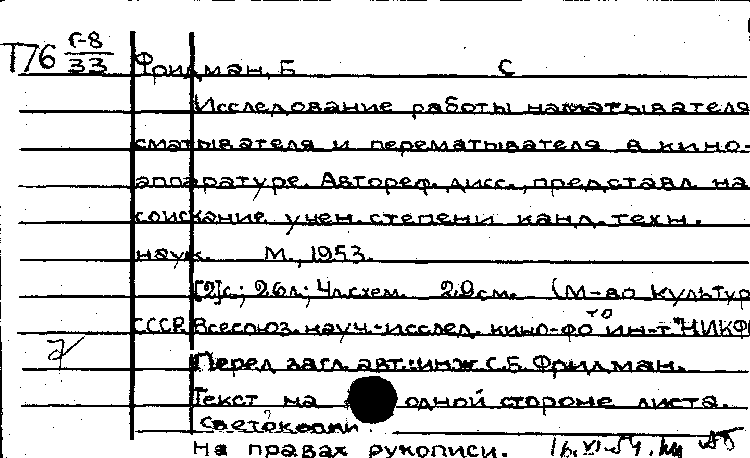 Т76 Г-8
33
Фридман, Б С
Исследование работы наматывателя
сматывателя и перематывателя в кино-
аппаратуре. Автореф. дисс., представл. на
соискание учен. степени канд. техн.
наук. М., 1953.
[2]с.; 26л.; 4л.схем. 29см. (М-во культур
СССР. Всесоюз. науч.-исслед. кино-фо
то ин-т "НИКФ
Перед загл. авт.: инж С.Б. Фридман.
Текст на одной стороне листа.
Светокопия.
На правах рукописи. 16.XI-54.